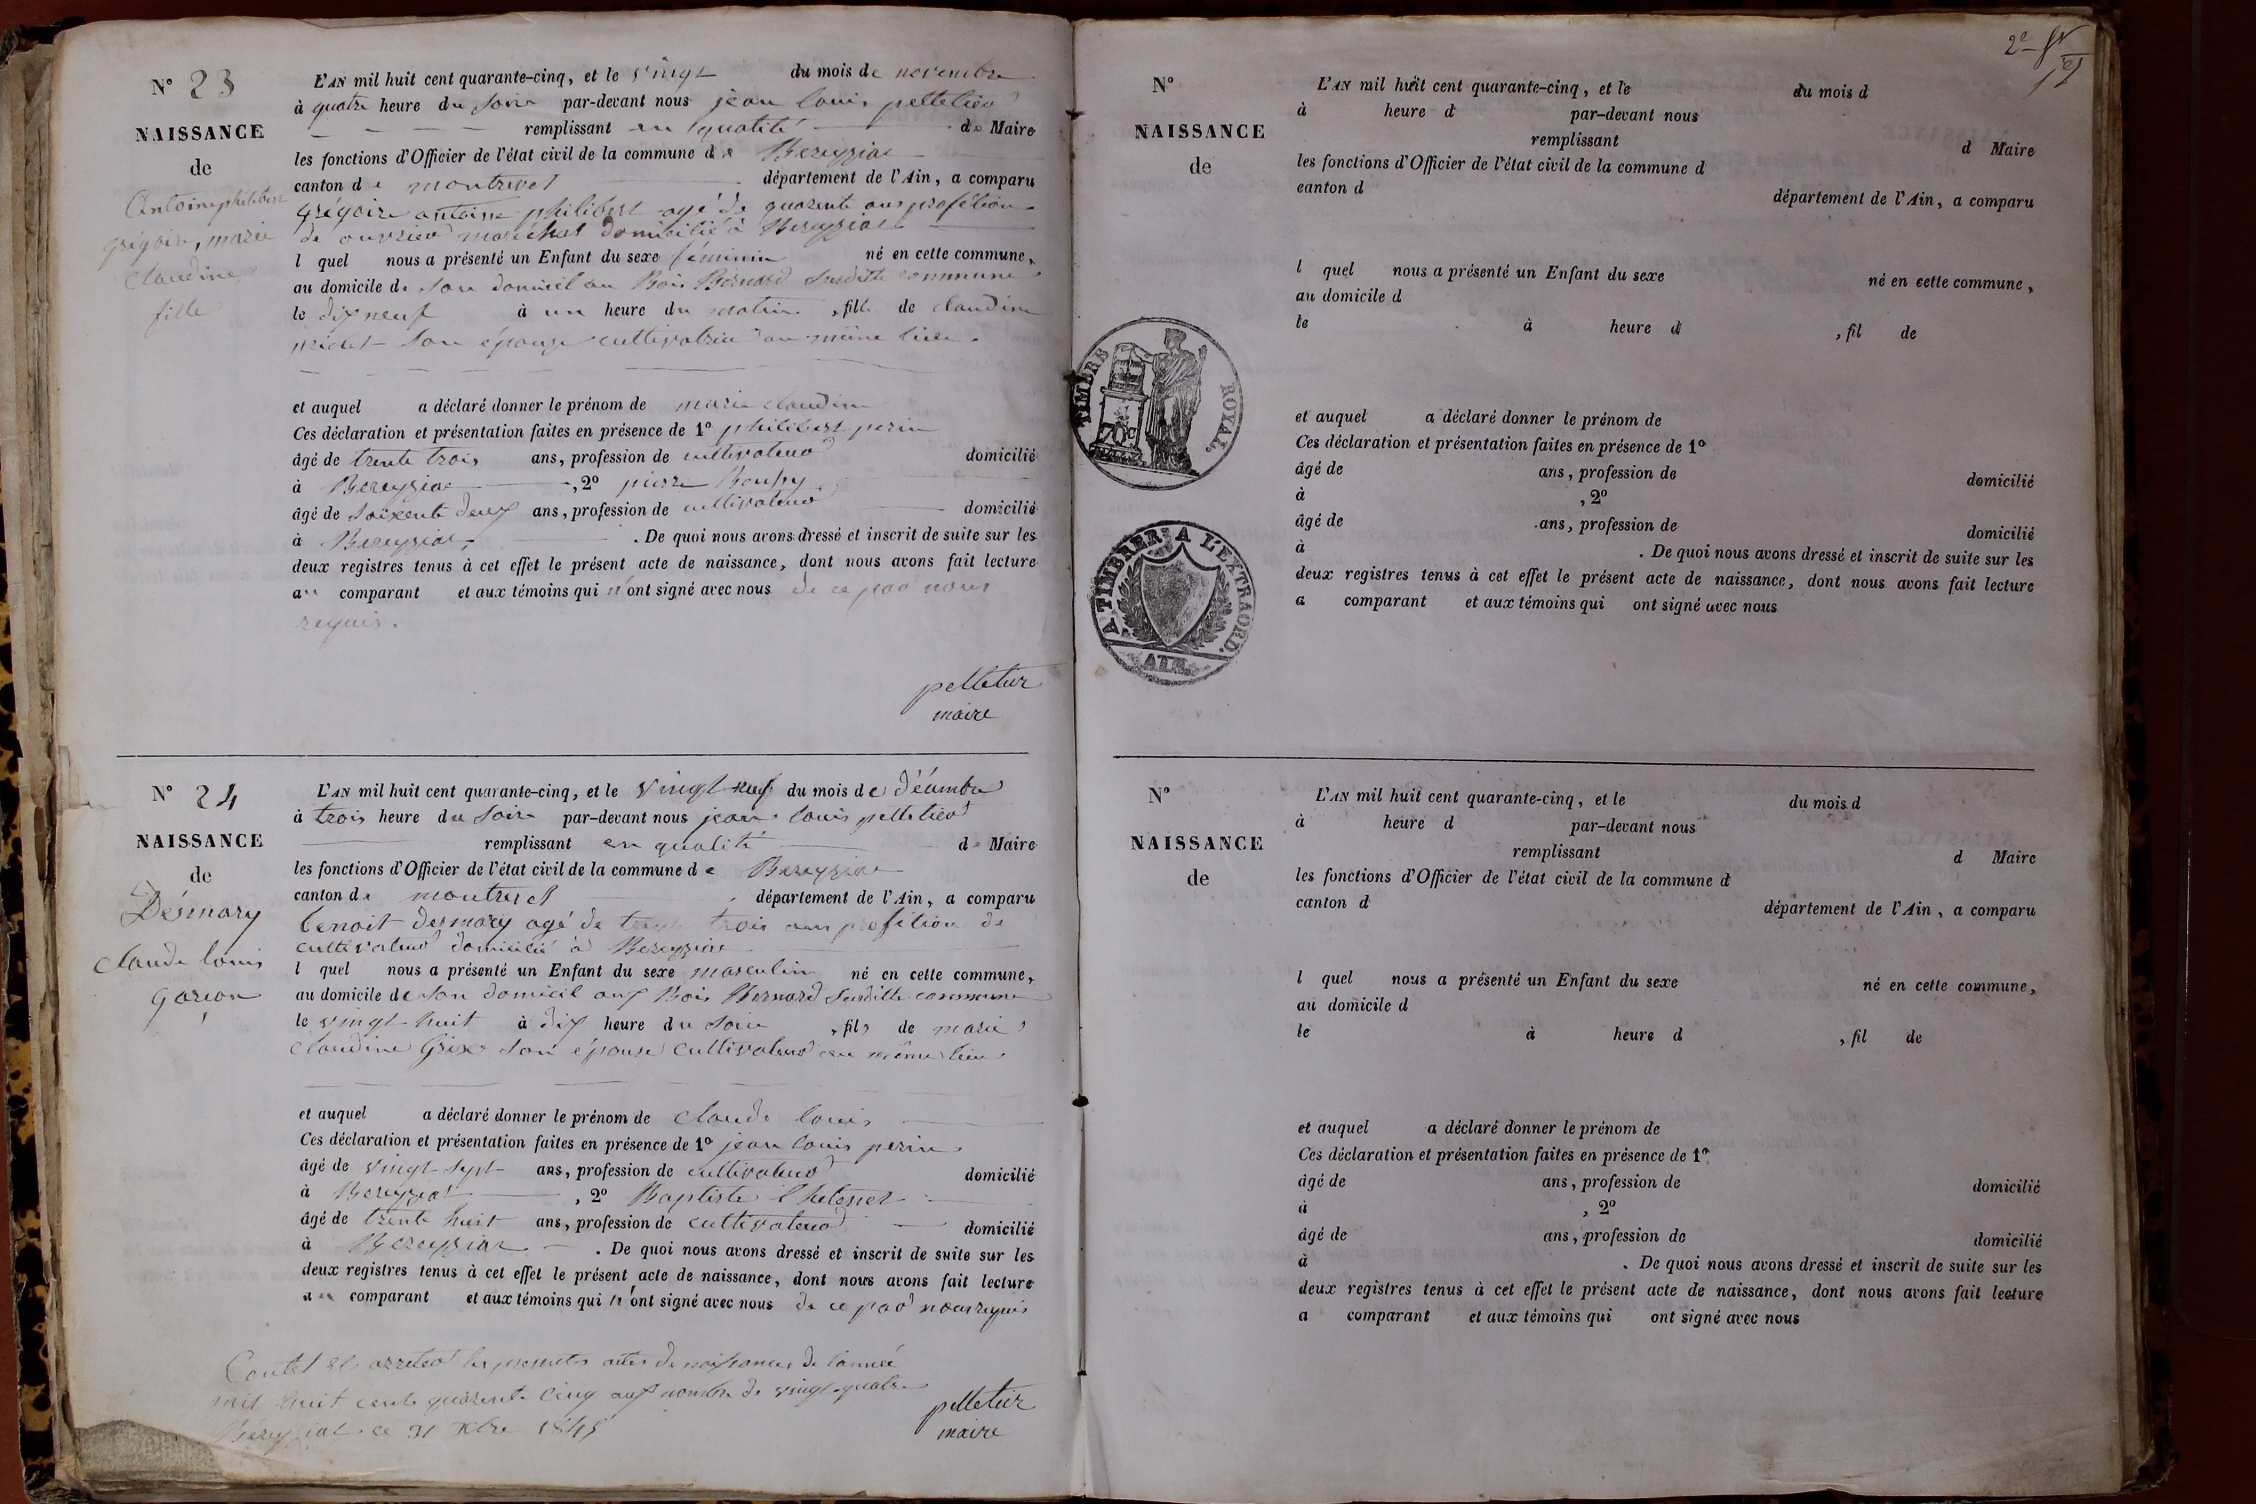 N° 23
NAISSANCE
de
Antoine philibert
grégoire, marie
claudine
fille
L'AN mil huit cent quarante-cinq, et le vingt du mois de novembre
à quatre heure du soir par-devant nous jean louis pelletier
remplissant en qualité de Maire
les fonctions d'Officier de l'état civil de la commune de Bereyziat
canton de montrevel département de l'Ain, a comparu
grégoire antoine philibert agé de quarente ans profétion
de ouvrier maréchal domicilié à Bereyziat
l quel nous a présenté un Enfant du sexe féminin né en cette commune,
au domicile de son domicil au Bois Bernard susditte commune
le dix neuf à un heure du matin, fille de claudine
son épouse cultivatrice au même lieu.
et auquel a déclaré donner le prénom de marie claudine
Ces déclaration et présentation faites en présence de 1° philibert perin
âgé de trente trois ans, profession de cultivateur domicilié
à Bereyziat, 2° pierre
âgé de soixente deux ans, profession de cultivateur domicilié
à Bereyziat. De quoi nous avons dressé et inscrit de suite sur les
deux registres tenus à cet effet le présent acte de naissance, dont nous avons fait lecture
au comparant et aux témoins qui n'ont signé avec nous de ce par nous
requis.
pelletier
maire
N° 24
NAISSANCE
de
Désmary
claude louis
garçon
L'AN mil huit cent quarante-cinq, et le vingt neuf du mois de décembre
à trois heure du soir par-devant nous jean louis pelletier
remplissant en qualité de Maire
les fonctions d'Officier de l'état civil de la commune de Bereyziat
canton de montrevel département de l'Ain, a comparu
benoit desmary agé de trente trois ans profétion de
cultivateur domicilié à Bereyziat
l quel nous a présenté un Enfant du sexe masculin né en cette commune,
au domicile de son domicil aux Bois Bernard susditte commune
le vingt huit à dix heure du soir, fils de marie
claudine son épouse cultivateur au même lieu
et auquel a déclaré donner le prénom de claude louis
Ces déclaration et présentation faites en présence de 1° jean louis perin
âgé de vingt sept ans, profession de cultivateur domicilié
à Bereyziat, 2° Baptiste
âgé de trente huit ans, profession de cultivateur domicilié
à Bereyziat. De quoi nous avons dressé et inscrit de suite sur les
deux registres tenus à cet effet le présent acte de naissance, dont nous avons fait lecture
au comparant et aux témoins qui n'ont signé avec nous de ce par nous requis
et arreter les presents actes de naissances de l'année
mil huit cents quarente cinq aux nombre de vingt quatre
Béreyziat ce 31 Xbre 1845
pelletier
maire
N°
NAISSANCE
de
L'AN mil huit cent quarante-cinq, et le du mois d
à heure d par-devant nous
remplissant d Maire
les fonctions d'Officier de l'état civil de la commune d
canton d département de l'Ain, a comparu
l quel nous a présenté un Enfant du sexe né en cette commune,
au domicile d
le à heure d, fil de
TIMBRE ROYAL.
et auquel a déclaré donner le prénom de
Ces déclaration et présentation faites en présence de 1°
âgé de ans, profession de domicilié
à, 2°
âgé de ans, profession de domicilié
à. De quoi nous avons dressé et inscrit de suite sur les
deux registres tenus à cet effet le présent acte de naissance, dont nous avons fait lecture
a comparant et aux témoins qui ont signé avec nous
A TIMBRER A L'EXTRAORD.
AIN.
N°
NAISSANCE
de
L'AN mil huit cent quarante-cinq, et le du mois d
à heure d par-devant nous
remplissant d Maire
les fonctions d'Officier de l'état civil de la commune d
canton d département de l'Ain, a comparu
l quel nous a présenté un Enfant du sexe né en cette commune,
au domicile d
le à heure d, fil de
et auquel a déclaré donner le prénom de
Ces déclaration et présentation faites en présence de 1°
âgé de ans, profession de domicilié
à, 2°
âgé de ans, profession de domicilié
à. De quoi nous avons dressé et inscrit de suite sur les
deux registres tenus à cet effet le présent acte de naissance, dont nous avons fait lecture
a comparant et aux témoins qui ont signé avec nous